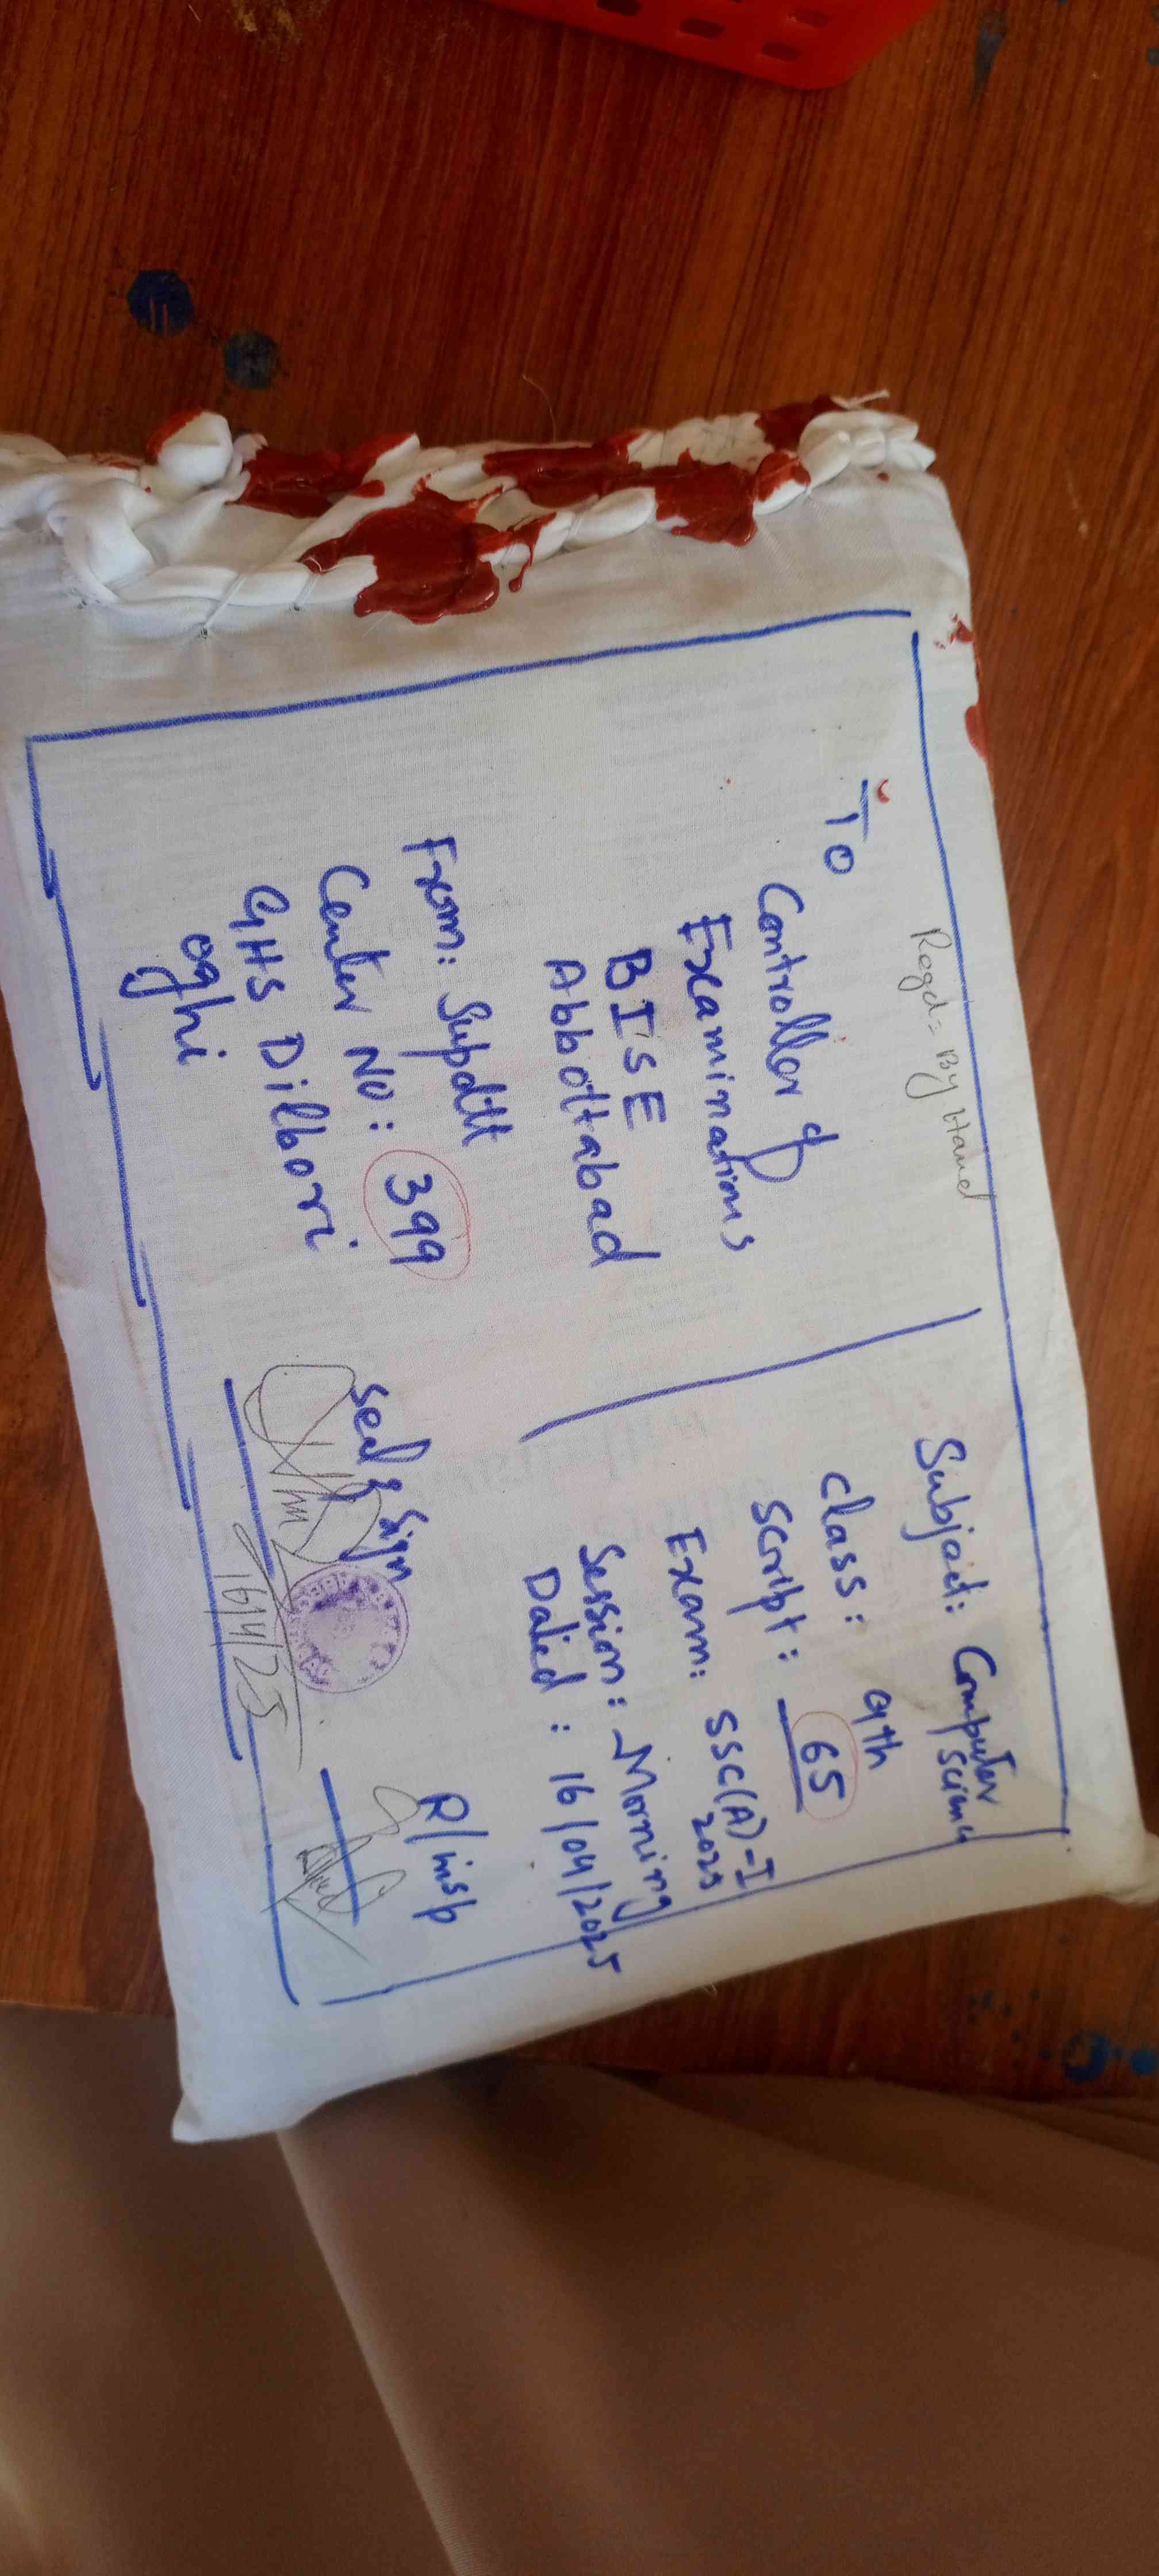 Regd = By Hand
To
Controller of
Examinations
BISE
Abbottabad
From: Supdtt
Center No: 399
GHS Dilbori
oghi
Subject: Computer
Science
Class: 9th
Script: 65
Exam: SSC(A)-I
2025
Session: Morning
Dated: 16/04/2025
Seal & Sign
16/4/25
R/insp